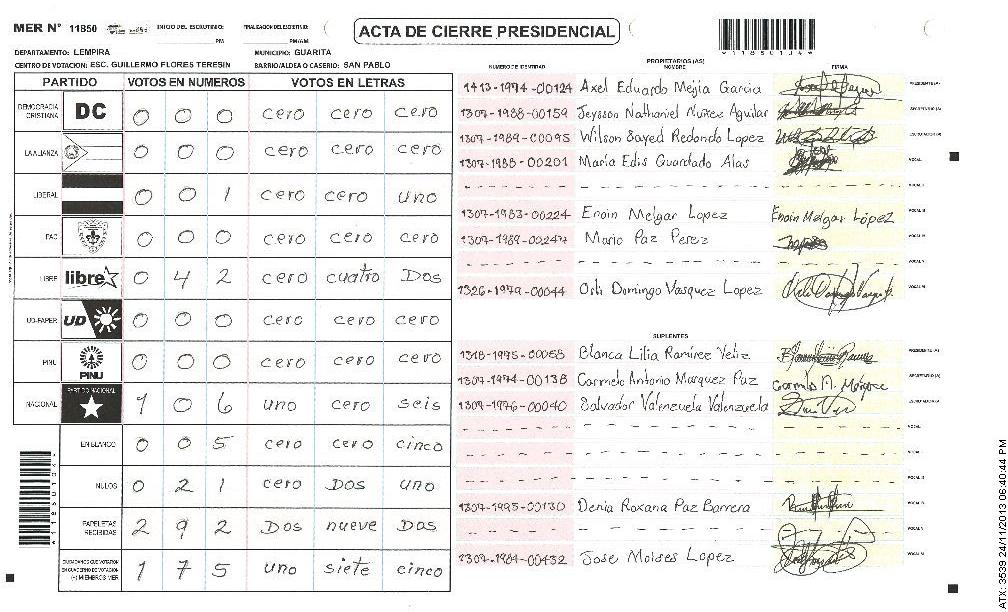 MER Nº 11850 INICIO DEL ESCRUTINIO: FINALIZACION DEL ESCRUTINIO:
ACTA DE CIERRE PRESIDENCIAL
PM PM/AM
11850104
DEPARTAMENTO: LEMPIRA MUNICIPIO: GUARITA
CENTRO DE VOTACION: ESC. GUILLERMO FLORES TERESIN BARRIO/ALDEA O CASERIO: SAN PABLO
PARTIDO VOTOS EN NUMEROS VOTOS EN LETRAS
DEMOCRACIA CRISTIANA DC 0 0 0 cero cero cero
LA ALIANZA 0 0 0 cero cero cero
LIBERAL 0 0 1 cero cero uno
PAC 0 0 0 cero cero cero
LIBRE libre 0 4 2 cero cuatro Dos
UD-FAPER UD 0 0 0 cero cero cero
PINU PINU 0 0 0 cero cero cero
NACIONAL PARTIDO NACIONAL 1 0 6 uno cero seis
EN BLANCO 0 0 5 cero cero cinco
NULOS 0 2 1 cero Dos uno
PAPELETAS RECIBIDAS 2 9 2 Dos nueve Dos
CIUDADANOS QUE VOTARON EN CUADERNO DE VOTACION (+) MIEMBROS MER 1 7 5 uno siete cinco
PROPIETARIOS (AS)
NUMERO DE IDENTIDAD NOMBRE FIRMA
1413-1974-00124 Axel Eduardo Mejia Garcia PRESIDENTE (A)
1307-1988-00159 Jeysson Nathaniel Nuñez Aguilar SECRETARIO (A)
1307-1989-00095 Wilson Sayed Redondo Lopez ESCRUTADOR (A)
1307-1988-00201 Maria Edis Guardado Alas VOCAL I
VOCAL II
1307-1983-00224 Eroin Melgar Lopez Eroin Melgar López VOCAL III
1307-1989-00247 Mario Paz Perez VOCAL IV
VOCAL V
1326-1979-00044 Orli Domingo Vasquez Lopez VOCAL VI
SUPLENTES
1318-1975-00058 Blanca Lilia Ramirez Veliz PRESIDENTE (A)
1307-1974-00138 Carmelo Antonio Marquez Paz SECRETARIO (A)
1309-1976-00040 Salvador Valenzuela Valenzuela ESCRUTADOR/A
VOCAL I
VOCAL II
VOCAL III
1307-1995-00130 Denia Roxana Paz Barrera VOCAL IV
VOCAL V
1307-1984-00432 Jose Moises Lopez VOCAL VI
ATX: 3539 24/11/2013 06:40:44 PM